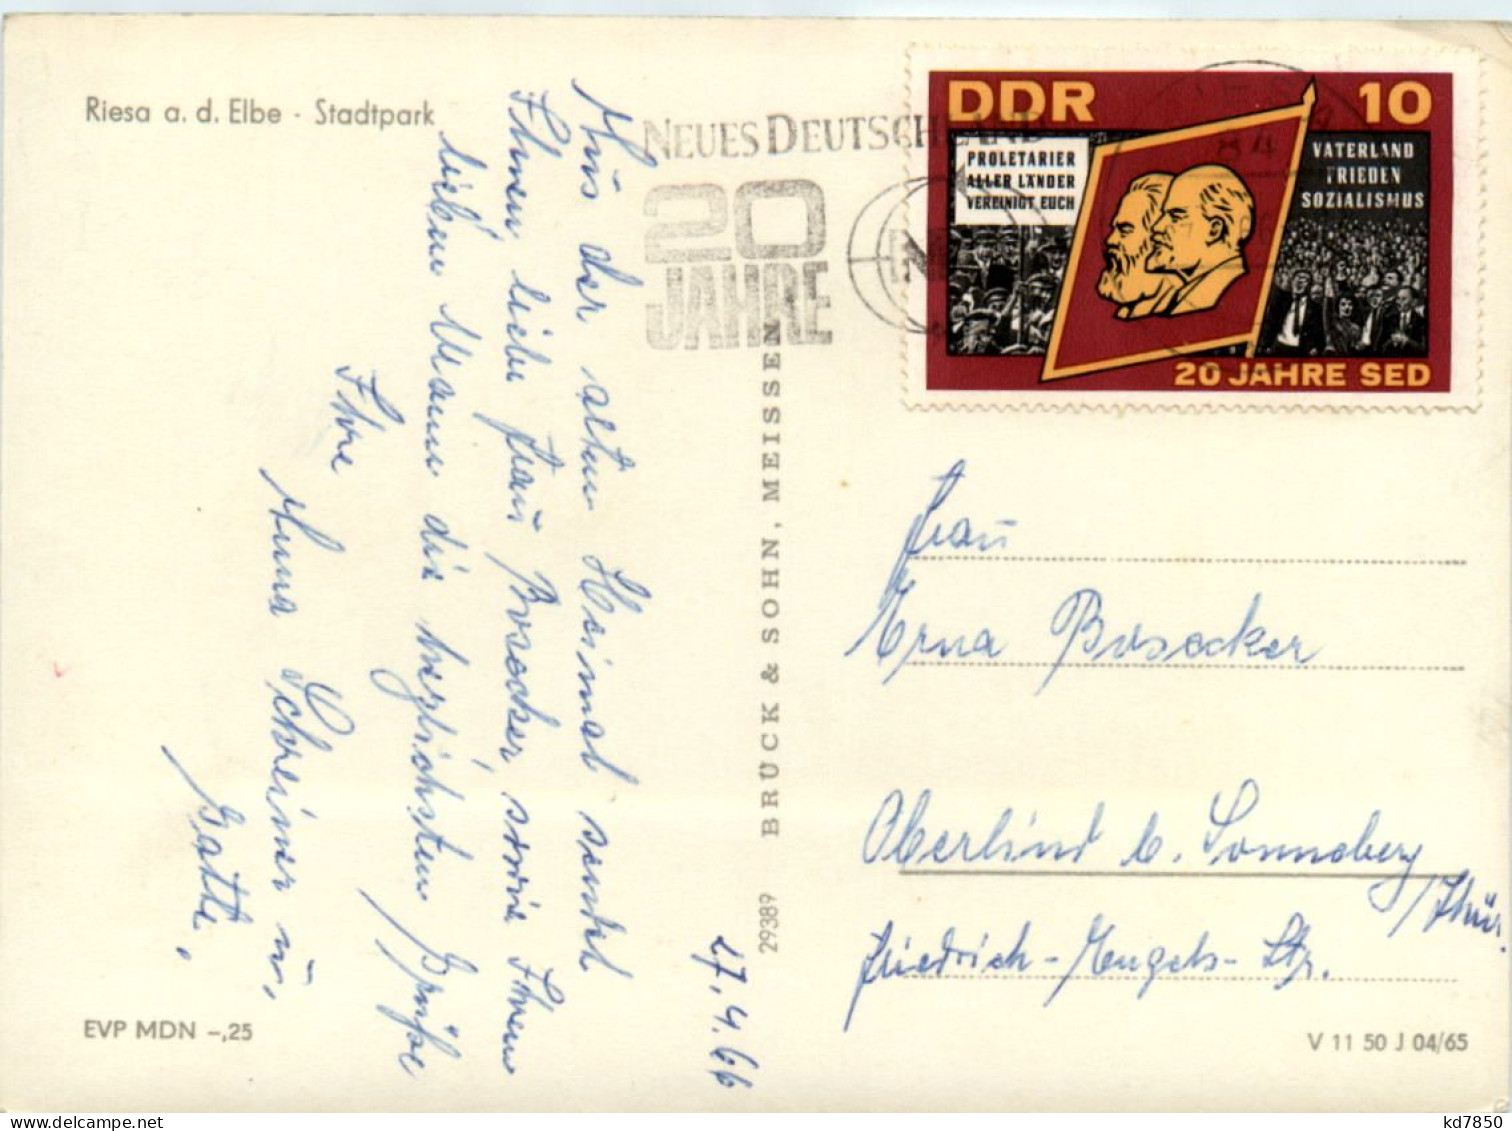 Riesa a. d. Elbe - Stadtpark
NEUES DEUTSCHLAND
20
JAHRE
DDR 10
PROLETARIER
ALLER LÄNDER
VEREINIGT EUCH
VATERLAND
FRIEDEN
SOZIALISMUS
20 JAHRE SED
Aus der alten Heimat sendet
Ihnen liebe Frau Bosecker, sowie Ihrem
lieben Mann die herzlichsten Grüße
Ihre
Anna Scheiner u.
Gatte.
27.4.66
29389 BRÜCK & SOHN, MEISSEN
Frau
Erna Bosecker
Oberlind b. Sonneberg
/Thür.
Friedrich-Engels-Str.
EVP MDN –,25
V 11 50 J 04/65
kd7850